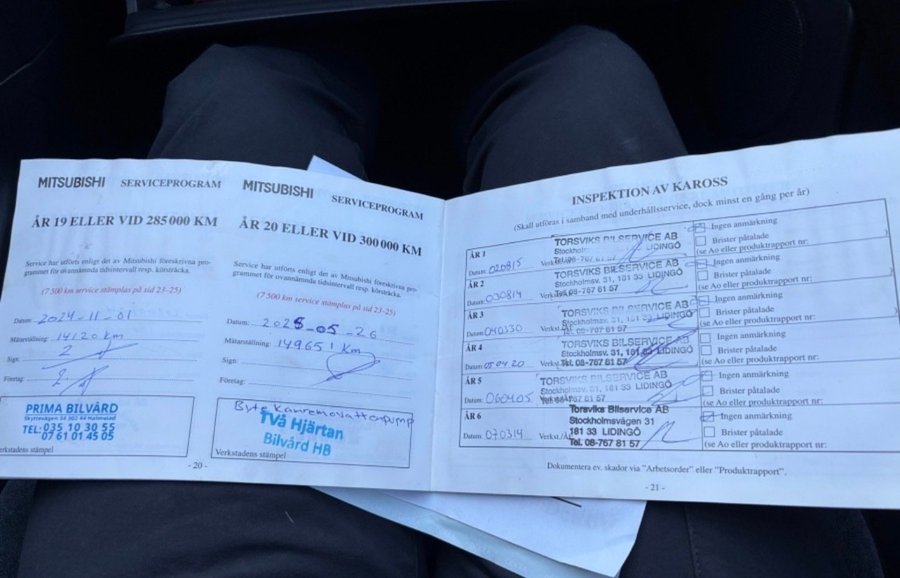 MITSUBISHI SERVICEPROGRAM
ÅR 19 ELLER VID 285 000 KM
Service har utförts enligt det av Mitsubishi föreskrivna pro-
grammet för ovannämnda tidsintervall resp. körsträcka.
(7 500 km service stämplas på sid 23-25)
Datum: 2024-11-01
Mätarställning: 14120 km
Sign:
Företag:
PRIMA BILVÅRD
TEL: 035 10 30 55
07 61 01 45 05
Verkstadens stämpel
- 20 -
MITSUBISHI SERVICEPROGRAM
ÅR 20 ELLER VID 300 000 KM
Service har utförts enligt det av Mitsubishi föreskrivna pro-
grammet för ovannämnda tidsintervall resp. körsträcka.
(7 500 km service stämplas på sid 23-25)
Datum: 2025-05-26
Mätarställning: 149651 Km
Sign:
Företag:
Byte Kamrem o Vattenpump
Två Hjärtan
Bilvård HB
Verkstadens stämpel
INSPEKTION AV KAROSS
(Skall utföras i samband med underhållsservice, dock minst en gång per år)
ÅR 1
Datum: 020815
TORSVIKS BILSERVICE AB
LIDINGÖ
Tel. 08-767 81 57
Ingen anmärkning
Brister påtalade
(se Ao eller produktrapport nr:
ÅR 2
Datum: 030814
TORSVIKS BILSERVICE AB
LIDINGÖ
Tel. 08-767 81 57
Ingen anmärkning
Brister påtalade
(se Ao eller produktrapport nr:
ÅR 3
Datum: 040330
TORSVIKS BILSERVICE AB
Stockholmsv. 31, 181 33 LIDINGÖ
Tel. 08-767 81 57
Ingen anmärkning
Brister påtalade
(se Ao eller produktrapport nr:
ÅR 4
Datum: 050420
TORSVIKS BILSERVICE AB
Stockholmsv. 31, 181 33 LIDINGÖ
Tel. 08-767 81 57
Ingen anmärkning
Brister påtalade
(se Ao eller produktrapport nr:
ÅR 5
Datum: 060405
TORSVIKS BILSERVICE AB
Stockholmsv. 31, 181 33 LIDINGÖ
Ingen anmärkning
Brister påtalade
(se Ao eller produktrapport nr:
ÅR 6
Datum: 070314
Torsviks Bilservice AB
Stockholmsvägen 31
181 33 LIDINGÖ
Tel. 08-767 81 57
Ingen anmärkning
Brister påtalade
(se Ao eller produktrapport nr:
Dokumentera ev. skador via "Arbetsorder" eller "Produktrapport".
- 21 -